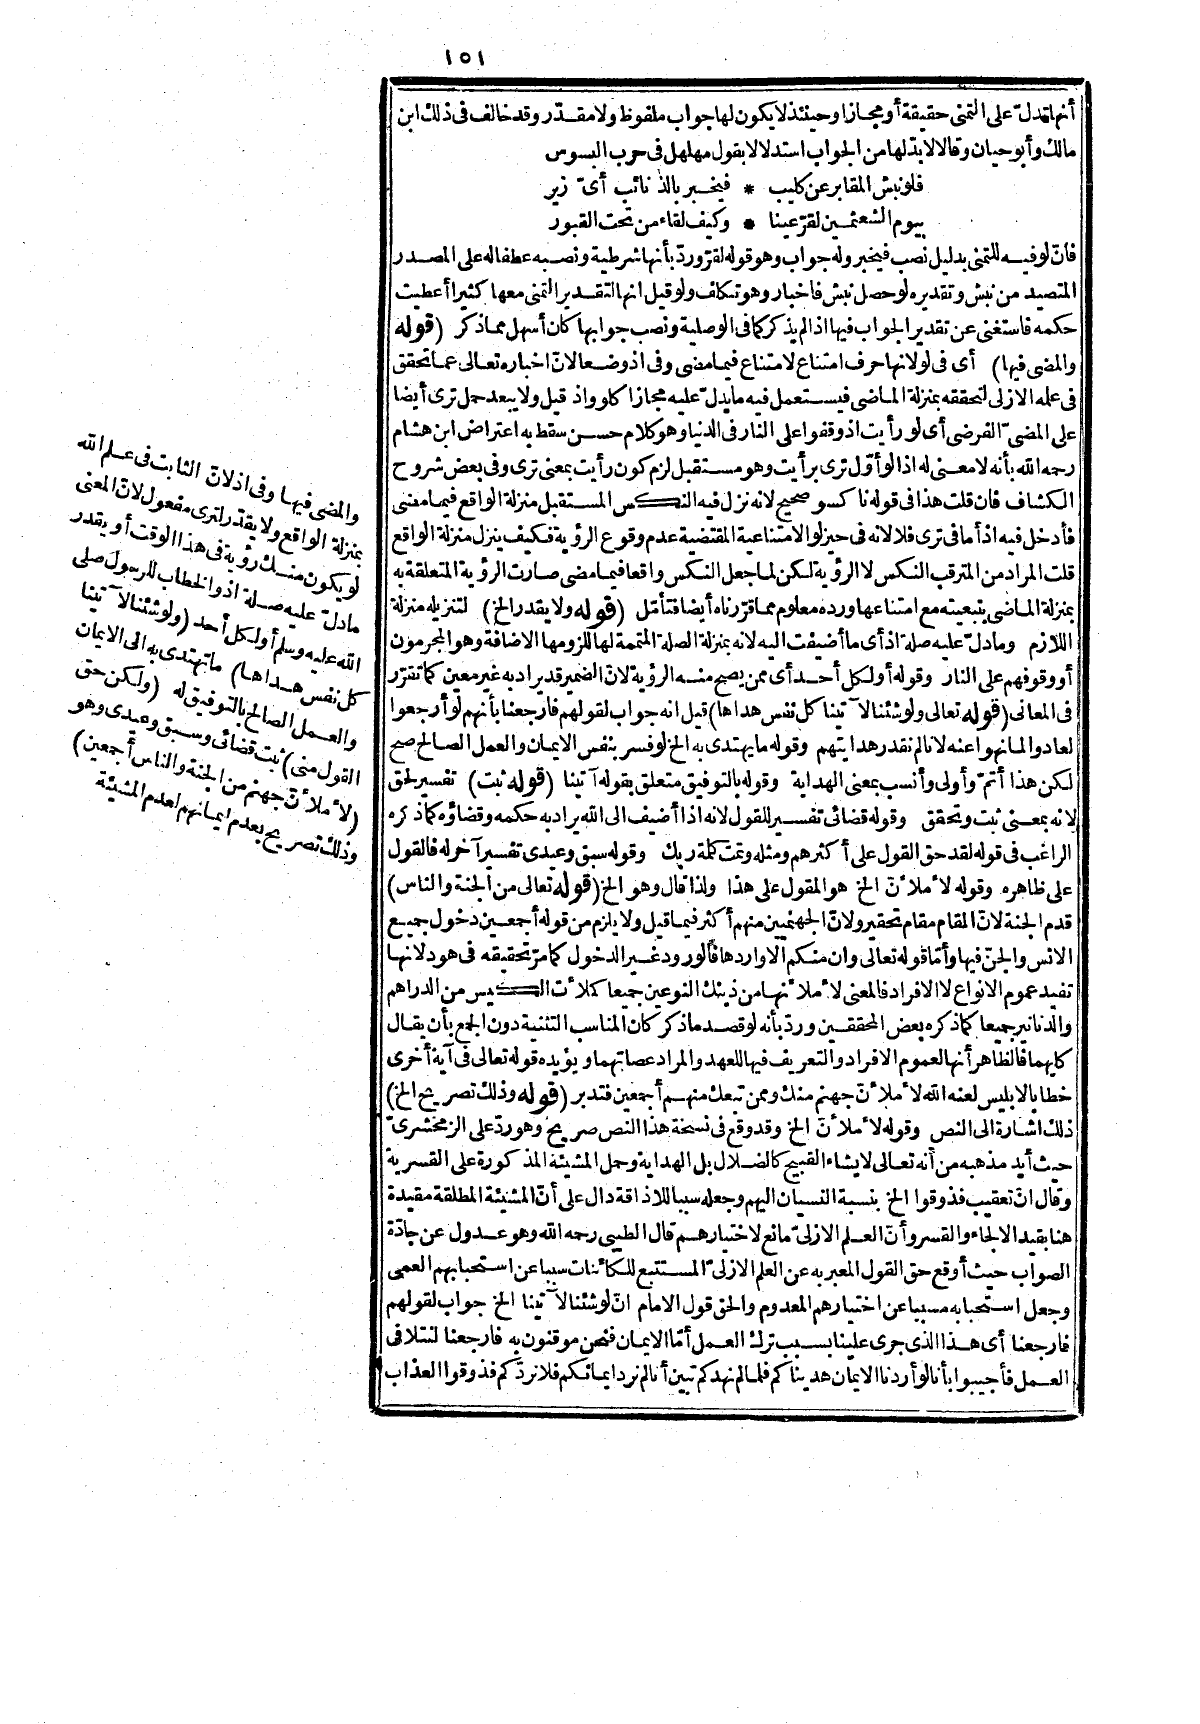 ١٥١
أنها تدل على التمنى حقيقة أو مجازا وحينئذ لا يكون لها جواب ملفوظ ولا مقدّر وقد خالف فى ذلك ابن
مالك وأبو حيان وقالا لا بدّ لها من الجواب استدلالا بقول مهلهل فى حرب البسوس
فلو نبش المقابر عن كليب * فيخبر بالذنائب أىّ زير
بيوم الشعثمين لقرّ عينا * وكيف لقاء من تحت القبور
فانّ لو فيه للتمنى بدليل نصب فيخبر وله جواب وهو قوله لقرّ وردّ بأنها شرطية ونصبه عطفا له على المصدر
المتصيد من نبش وتقديره لو حصل نبش فاخبار وهو تكلف ولو قيل انها التقدير التمنى معها كثيرا أعطيت
حكمه فاستغنى عن تقدير الجواب فيها اذا لم يذكر كما فى الوصلية ونصب جوابها كان أسهل مما ذكر (قوله
والمضى فيها) أى فى لو لانها حرف امتناع لامتناع فيما مضى وفى اذ وضعا لانّ اخباره تعالى عما تحقق
فى علمه الازلى لتحققه بمنزلة الماضى فيستعمل فيه ما يدلّ عليه مجازا كلو واذ قيل ولا يبعد حمل ترى أيضا
على المضىّ الفرضى أى لو رأيت اذ وقفوا على النار فى الدنيا وهو كلام حسن سقط به اعتراض ابن هشام
رحمه الله بأنه لا معنى له اذ الو أوّل ترى برأيت وهو مستقبل لزم كون رأيت بمعنى ترى وفى بعض شروح
الكشاف فان قلت هذا فى قوله ناكسو صحيح لانه نزل فيه النكس المستقبل منزلة الواقع فيما مضى
فأدخل فيه اذ أما فى ترى فلا لانه فى حيز لو الامتناعية المقتضية عدم وقوع الرؤية فكيف ينزل منزلة الواقع
قلت المراد من المترقب النكس لا الرؤية لكن لما جعل النكس واقعا فيما مضى صارت الرؤية المتعلقة به
بمنزلة الماضى بتبعيته مع امتناعها ورده معلوم مما قرّرناه أيضا فتأمّل (قوله ولا يقدر الخ) لتنزيله منزلة
اللازم وما دلّ عليه صلة اذ أى ما أضيفت اليه لانه بمنزلة الصلة المتممة لها للزومها الاضافة وهو المجرمون
أو وقوفهم على النار وقوله أو لكل أحد أى ممن يصح منه الرؤية لانّ الضمير قد يراد به غير معين كما تقرّر
فى المعانى (قوله تعالى ولو شئنا لآتينا كل نفس هداها) قيل انه جواب لقولهم فارجعنا بأنهم لو أرجعوا
لعادوا لما نهوا عنه لانا لم نقدر هدايتهم وقوله ما يهتدى به الخ لو فسر بنفس الايمان والعمل الصالح صح
لكن هذا أتمّ وأولى وأنسب بمعنى الهداية وقوله بالتوفيق متعلق بقوله آتينا (قوله ثبت) تفسير لحق
لانه بمعنى ثبت وتحقق وقوله قضائى تفسير للقول لانه اذا أضيف الى الله يراد به حكمه وقضاؤه كما ذكره
الراغب فى قوله لقد حق القول على أكثرهم ومثله وتمت كلمة ربك وقوله سبق وعيدى تفسير آخر له فالقول
على ظاهره وقوله لأملأنّ الخ هو المقول على هذا ولذا قال وهو الخ (قوله تعالى من الجنة والناس)
قدم الجنة لانّ المقام مقام تحقير ولانّ الجهنميين منهم أكثر فيما قيل ولا يلزم من قوله أجمعين دخول جميع
الانس والجنّ فيها وأمّا قوله تعالى وان منكم الا واردها فالورود غير الدخول كما مرّ تحقيقه فى هود لانها
تفيد عموم الانواع لا الافراد فالمعنى لأملأنها من ذينك النوعين جميعا كملأت الكيس من الدراهم
والدنانير جميعا كما ذكره بعض المحققين وردّ بأنه لو قصد ما ذكر كان المناسب التثنية دون الجمع بأن يقال
كليهما فالظاهر أنها لعموم الافراد والتعريف فيها للعهد والمراد عصاتهما ويؤيده قوله تعالى فى آية أخرى
خطابا لابليس لعنه الله لأملأنّ جهنم منك وممن تبعك منهم أجمعين فتدبر (قوله وذلك تصريح الخ)
ذلك اشارة الى النص وقوله لأملأنّ الخ وقد وقع فى نسخة هذا النص صريح وهو ردّ على الزمخشرىّ
حيث أيد مذهبه من أنه تعالى لا يشاء القبيح كالضلال بل الهداية وحمل المشيئة المذكورة على القسرية
وقال انّ تعقيب فذوقوا الخ بنسبة النسيان اليهم وجعله سببا للاذاقة دال على أنّ المشيئة المطلقة مقيدة
هنا بقيد الالجاء والقسر وأنّ العلم الازلىّ مانع لاختيارهم قال الطيبى رحمه الله وهو عدول عن جادّة
الصواب حيث أوقع حق القول المعبر به عن العلم الازلىّ المستتبع للكائنات سببا عن استحبابهم العمى
وجعل استحبابه مسببا عن اختيارهم المعدوم والحق قول الامام انّ لو شئنا لآتينا الخ جواب لقولهم
فارجعنا أى هذا الذى جرى علينا بسبب ترك العمل أمّا الايمان فنحن موقنون به فارجعنا لنتلافى
العمل فأجيبوا بأنا لو أردنا الايمان هديناكم فلما لم نهدكم تبين أنا لم نرد ايمانكم فلا نردّكم فذوقوا العذاب
والمضى فيها وفى اذ لانّ الثابت فى علم الله
بمنزلة الواقع ولا يقدّر لترى مفعول لانّ المعنى
لو يكون منك رؤية فى هذا الوقت أو يقدر
ما دلّ عليه صلة اذ والخطاب للرسول صلى
الله عليه وسلم أو لكل أحد (ولو شئنا لآتينا
كل نفس هداها) ما تهتدى به الى الايمان
والعمل الصالح بالتوفيق له (ولكن حق
القول منى) ثبت قضائى وسبق وعيدى وهو
(لأملأنّ جهنم من الجنة والناس أجمعين)
وذلك تصريح بعدم ايمانهم لعدم المشيئة